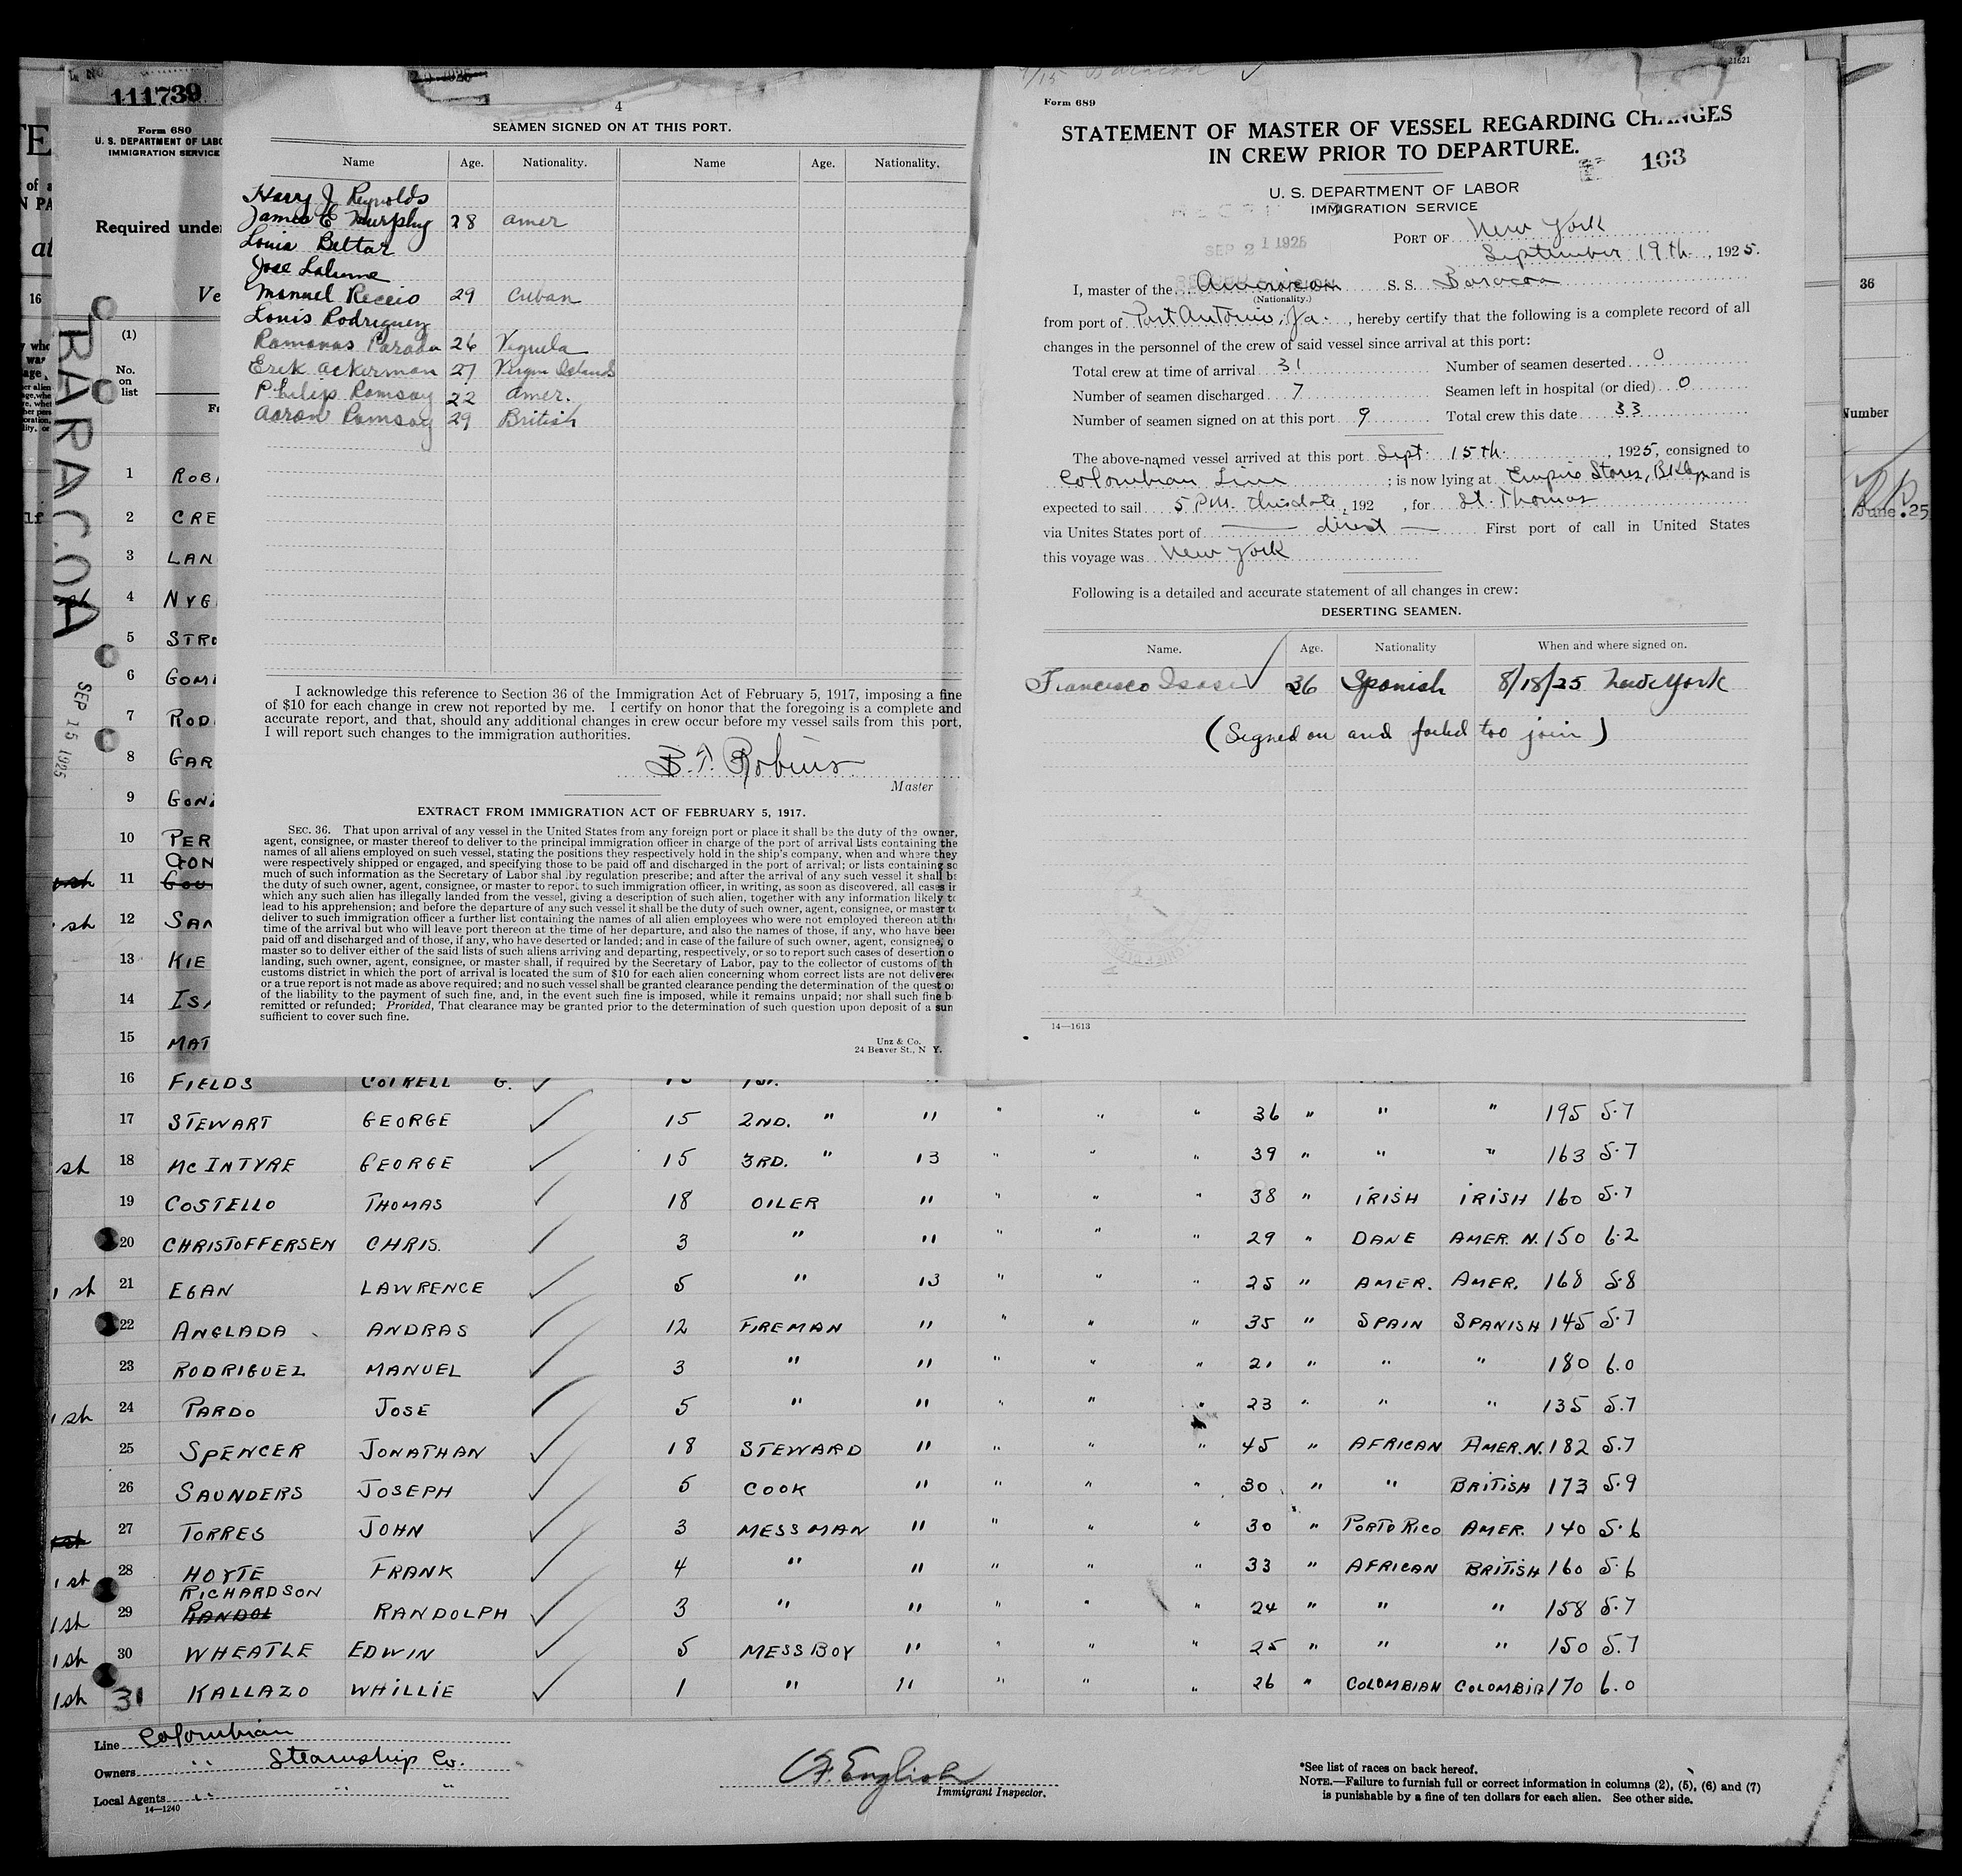 111739
Form 680
U. S. DEPARTMENT OF LABO
IMMIGRATION SERVICE
Required unde
Ve
(1)
No.
on
list
BARACOA
SEP 15 1925
1 ROBI
2 CRE
3 LAN
4 NYG
5 STRO
6 GOMI
7 ROD
8 GAR
9 GONZ
10 PER
GON
11
12 SAN
13 KIE
14 ISA
15 MAT
4
SEAMEN SIGNED ON AT THIS PORT.
Name Age. Nationality. Name Age. Nationality.
Harry J Reynolds
James E Murphy 28 amer
Louis Beltar
Jose
Manuel Receio 29 Cuban
Louis Rodriguez
Ramonas Parada 26
Erik Ackerman 27 Virgin Islands
Philip Ramsay 22 amer.
Aaron Ramsay 29 British
I acknowledge this reference to Section 36 of the Immigration Act of February 5, 1917, imposing a fine
of $10 for each change in crew not reported by me. I certify on honor that the foregoing is a complete and
accurate report, and that, should any additional changes in crew occur before my vessel sails from this port,
I will report such changes to the immigration authorities.
B. T. Robins
Master
EXTRACT FROM IMMIGRATION ACT OF FEBRUARY 5, 1917.
SEC. 36. That upon arrival of any vessel in the United States from any foreign port or place it shall be the duty of the owner,
agent, consignee, or master thereof to deliver to the principal immigration officer in charge of the port of arrival lists containing the
names of all aliens employed on such vessel, stating the positions they respectively hold in the ship's company, when and where they
were respectively shipped or engaged, and specifying those to be paid off and discharged in the port of arrival; or lists containing so
much of such information as the Secretary of Labor shal by regulation prescribe; and after the arrival of any such vessel it shall be
the duty of such owner, agent, consignee, or master to report to such immigration officer, in writing, as soon as discovered, all cases in
which any such alien has illegally landed from the vessel, giving a description of such alien, together with any information likely to
lead to his apprehension; and before the departure of any such vessel it shall be the duty of such owner, agent, consignee, or master to
deliver to such immigration officer a further list containing the names of all alien employees who were not employed thereon at the
time of the arrival but who will leave port thereon at the time of her departure, and also the names of those, if any, who have been
paid off and discharged and of those, if any, who have deserted or landed; and in case of the failure of such owner, agent, consignee, o
master so to deliver either of the said lists of such aliens arriving and departing, respectively, or so to report such cases of desertion o
landing, such owner, agent, consignee, or master shall, if required by the Secretary of Labor, pay to the collector of customs of th
customs district in which the port of arrival is located the sum of $10 for each alien concerning whom correct lists are not delivered
or a true report is not made as above required; and no such vessel shall be granted clearance pending the determination of the quest on
of the liability to the payment of such fine, and, in the event such fine is imposed, while it remains unpaid; nor shall such fine b
remitted or refunded; Provided, That clearance may be granted prior to the determination of such question upon deposit of a sum
sufficient to cover such fine.
Unz & Co.
24 Beaver St., N Y.
9/15 Baracoa
21621
Form 689
STATEMENT OF MASTER OF VESSEL REGARDING CHANGES
IN CREW PRIOR TO DEPARTURE.
103
U. S. DEPARTMENT OF LABOR
IMMIGRATION SERVICE
SEP 21 1925
PORT OF New York
September 19th, 1925.
I, master of the American S. S. Baracoa
(Nationality.)
from port of Port Antonio, Ja., hereby certify that the following is a complete record of all
changes in the personnel of the crew of said vessel since arrival at this port:
Total crew at time of arrival 31 Number of seamen deserted 0
Number of seamen discharged 7 Seamen left in hospital (or died) 0
Number of seamen signed on at this port 9 Total crew this date 33
The above-named vessel arrived at this port Sept. 15th, 1925, consigned to
Colombian Line ; is now lying at Empire Stores, Bklyn and is
expected to sail 5 P.M. this date, 192 , for St. Thomas
via Unites States port of direct First port of call in United States
this voyage was New York
Following is a detailed and accurate statement of all changes in crew:
DESERTING SEAMEN.
Name. Age. Nationality When and where signed on.
Francisco 36 Spanish 8/18/25 New York
(Signed on and failed too join)
14—1613
36
Number
June. 25
16 FIELDS COTRELL G.
17 STEWART GEORGE 15 2ND. " " " " " 36 " " " 195 5.7
1st 18 MC INTYRE GEORGE 15 3RD. " 13 " " " 39 " " " 163 5.7
19 COSTELLO THOMAS 18 OILER " " " " 38 " IRISH IRISH 160 5.7
20 CHRISTOFFERSEN CHRIS. 3 " " " " " 29 " DANE AMER. N. 150 6.2
1st 21 EGAN LAWRENCE 5 " 13 " " " 25 " AMER. AMER. 168 5.8
22 ANGLADA ANDRAS 12 FIREMAN " " " " 35 " SPAIN SPANISH 145 5.7
23 RODRIGUEZ MANUEL 3 " " " " " 21 " " " 180 6.0
1st 24 PARDO JOSE 5 " " " " " 23 " " " 135 5.7
25 SPENCER JONATHAN 18 STEWARD " " " " 45 " AFRICAN AMER. N. 182 5.7
26 SAUNDERS JOSEPH 5 COOK " " " " 30 " " BRITISH 173 5.9
1st 27 TORRES JOHN 3 MESSMAN " " " " 30 " PORTO RICO AMER. 140 5.6
1st 28 HOYTE FRANK 4 " " " " " 33 " AFRICAN BRITISH 160 5.6
RICHARDSON
1st 29 RANDOL RANDOLPH 3 " " " " " 24 " " " 158 5.7
1st 30 WHEATLE EDWIN 5 MESS BOY " " " " 25 " " " 150 5.7
1st 31 KALLAZO WHILLIE 1 " " " " " 26 " COLOMBIAN COLOMBIA 170 6.0
Line Colombian
Owners " Steamship Co.
Local Agents " " "
14—1240
F. English
Immigrant Inspector.
*See list of races on back hereof.
NOTE.—Failure to furnish full or correct information in columns (2), (5), (6) and (7)
is punishable by a fine of ten dollars for each alien. See other side.